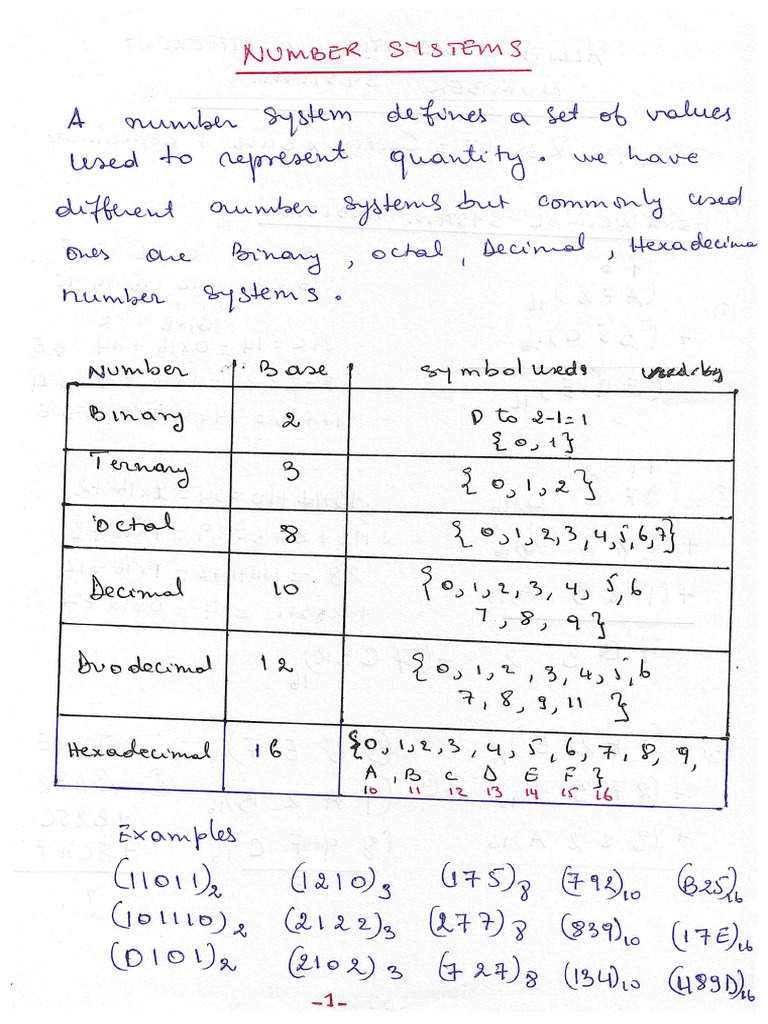 NUMBER SYSTEMS
A number system defines a set of values
used to represent quantity. we have
different number systems but commonly used
ones are Binary, octal, Decimal, Hexadecima
number systems.
Number Base Symbol used
Binary 2 0 to 2-1=1
{0,1}
Ternary 3 {0,1,2}
Octal 8 {0,1,2,3,4,5,6,7}
Decimal 10 {0,1,2,3,4,5,6
7,8,9}
Duodecimal 12 {0,1,2,3,4,5,6
7,8,9,11 }
Hexadecimal 16 {0,1,2,3,4,5,6,7,8,9,
A,B C D E F }
10 11 12 13 14 15 16
Examples
(11011)₂ (1210)₃ (175)₈ (792)₁₀ (B25)₁₆
(101110)₂ (2122)₃ (277)₈ (839)₁₀ (17E)₁₆
(0101)₂ (2102)₃ (727)₈ (134)₁₀ (489D)₁₆
-1-